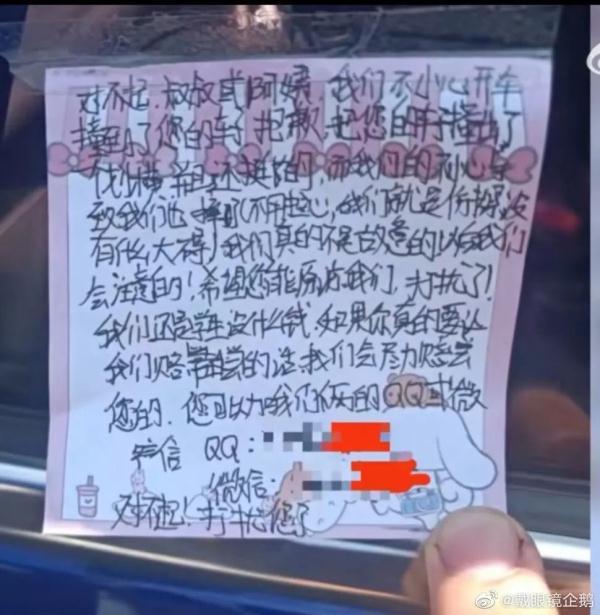 对不起,叔叔或阿姨,我们不小心开车
撞到了您的车了,抱歉,把您的车撞出了
我们的不小心导
致我们也摔(不用担心,我们就是你摔没
有什么大碍)我们真的不是故意的以后我们
会注意的!希望您能原谅我们,打扰了!
我们还是学生没什么钱,如果你真的要让
我们赔偿的话,我们会尽力赔尝
您的.您可以加我们俩的QQ或微
信 QQ:
微信:
对不起!打扰您了
@戴眼镜企鹅